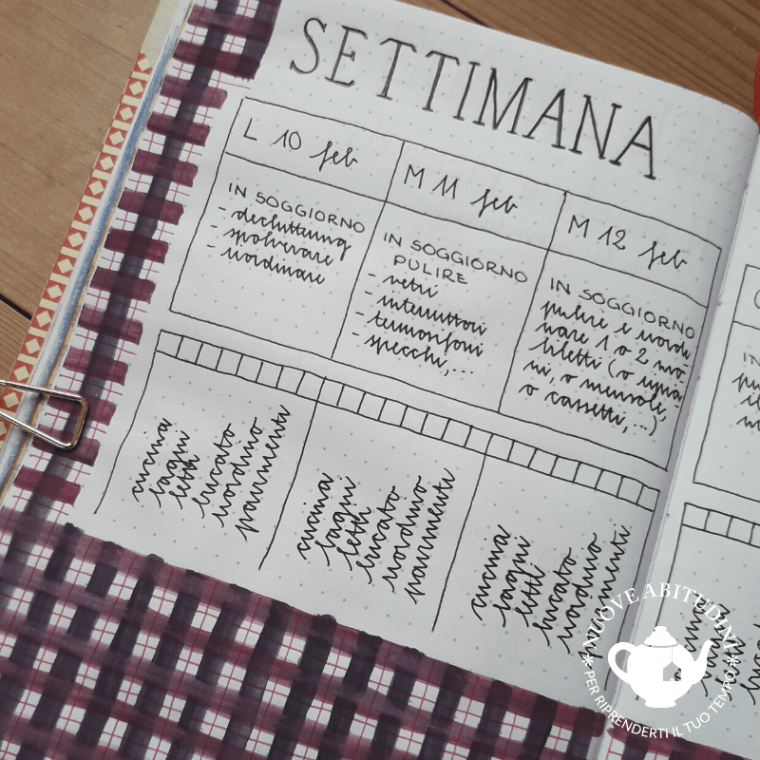 SETTIMANA
L 10 feb
IN SOGGIORNO
- decluttering
- spolverare
- riordinare
M 11 feb
IN SOGGIORNO
PULIRE
- vetri
- interruttori
- termosifoni
- specchi,...
M 12 feb
IN SOGGIORNO
pulire e riordi
nare 1 o 2 mo
biletti (o ripia
ni, o mensole,
o cassetti,...)
IN
pu
cucina
bagni
letti
bucato
riordino
pavimenti
cucina
bagni
letti
bucato
riordino
pavimenti
cucina
bagni
letti
bucato
riordino
pavimenti
NUOVE ABITUDINI
PER RIPRENDERTI IL TUO TEMPO